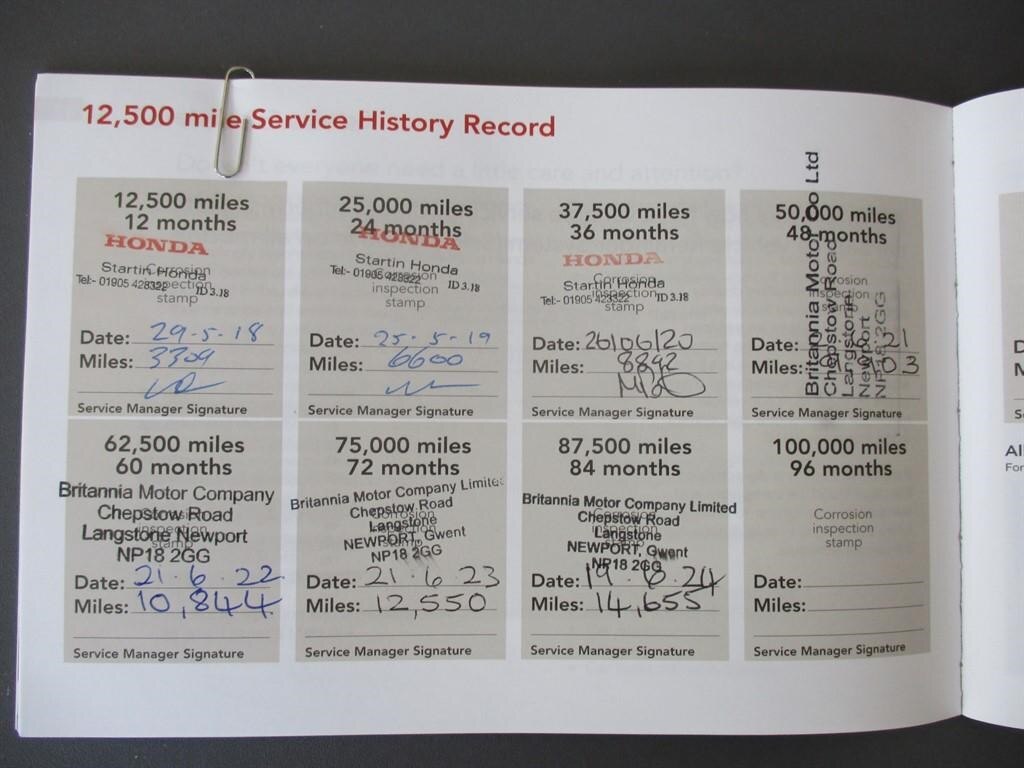 12,500 mile Service History Record
12,500 miles
12 months
HONDA
Startin Honda
Corrosion
Tel:- 01905 423322
inspection
ID 3.18
stamp
Date: 29-5-18
Miles: 3309
Service Manager Signature
25,000 miles
24 months
HONDA
Startin Honda
Corrosion
Tel:- 01905 423322
inspection
ID 3.18
stamp
Date: 25-5-19
Miles: 6600
Service Manager Signature
37,500 miles
36 months
HONDA
Startin Honda
Corrosion
Tel:- 01905 423322
inspection
ID 3.18
stamp
Date: 26/06/20
Miles: 8892
Service Manager Signature
50,000 miles
48 months
Britannia Motor Co Ltd
Chepstow Road
Langstone
Newport
NP18 2GG
Corrosion
inspection
stamp
Date: 21
Miles: 103
Service Manager Signature
62,500 miles
60 months
Britannia Motor Company
Chepstow Road
Corrosion
Langstone Newport
inspection
stamp
NP18 2GG
Date: 21.6.22
Miles: 10,844
Service Manager Signature
75,000 miles
72 months
Britannia Motor Company Limited
Chepstow Road
Corrosion
Langstone
inspection
NEWPORT, Gwent
stamp
NP18 2GG
Date: 21.6.23
Miles: 12,550
Service Manager Signature
87,500 miles
84 months
Britannia Motor Company Limited
Chepstow Road
Corrosion
Langstone
inspection
NEWPORT, Gwent
stamp
NP18 2GG
Date: 19.6.24
Miles: 14,655
Service Manager Signature
100,000 miles
96 months
Corrosion
inspection
stamp
Date:
Miles:
Service Manager Signature